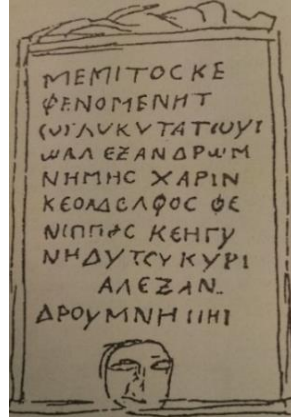 ΜΕΜΙΤΟϹΚΕ
ΦΕΝΟΜΕΝΗΤ
ωΓΛΥΚΥΤΑΤωΥΙ
ωΑΛΕΞΑΝΔΡωΜ
ΝΗΜΗϹ ΧΑΡΙΝ
ΚΕΟΑΔΕΛΦΟϹ ΦΕ
ΝΙΠΠΟϹ ΚΕΗΓΥ
ΝΗΑΥΤΟΥ ΚΥΡΙ
ΑΛΕΞΑΝ
ΔΡΟΥΜΝΗΙΙΗΙ